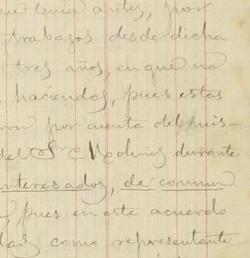 tenia antes, por
trabajos desde dicha
tres años, en que no
haciendas, pues estas
ron por cuenta del mis-
del Sr. Molina durante
interesados, de comun
pues en este acuerdo
como representante